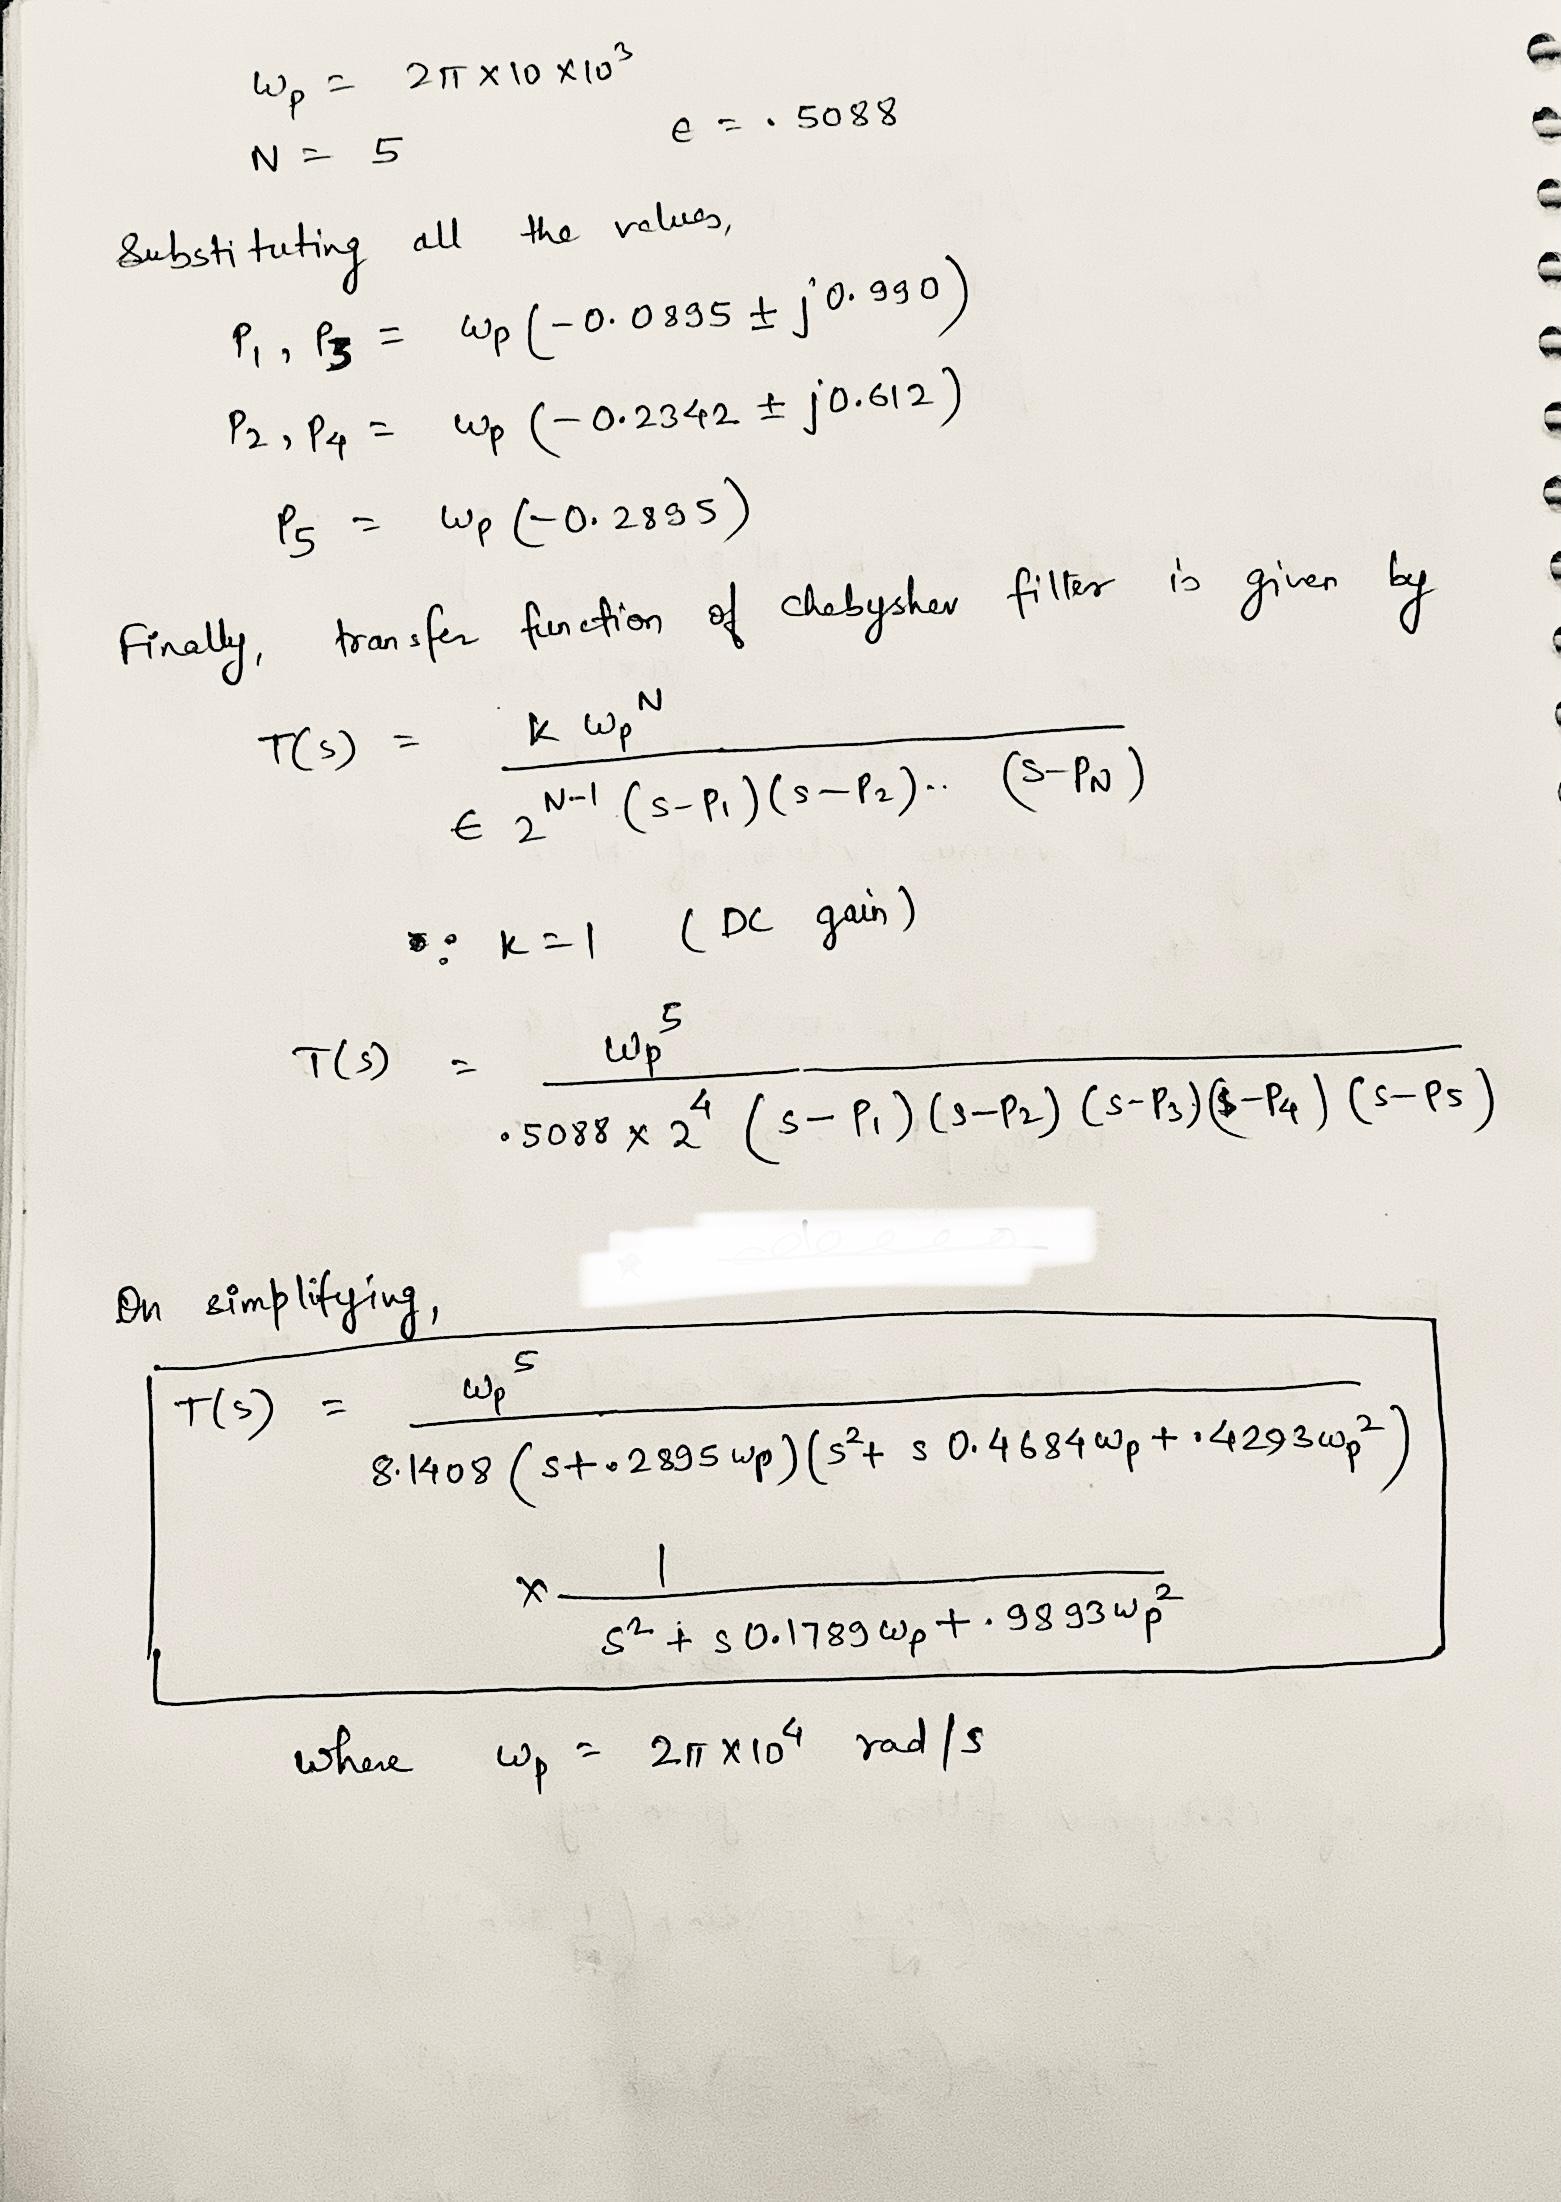 ωp = 2π × 10 × 10³
N = 5 e = .5088
Substituting all the values,
P₁, P₃ = ωp (-0.0895 ± j0.990)
P₂, P₄ = ωp (-0.2342 ± j0.612)
P₅ = ωp (-0.2895)
Finally, transfer function of chebyshev filter is given by
T(s) = k ωp^N / ϵ 2^(N-1) (s-P₁)(s-P₂).. (s-P_N)
∵ k=1 (DC gain)
T(s) = ωp⁵ / .5088 × 2⁴ (s-P₁)(s-P₂)(s-P₃)(s-P₄)(s-P₅)
On simplifying,
T(s) = ωp⁵ / 8.1408 (s+.2895ωp)(s²+ s 0.4684ωp + .4293ωp²)
× 1 / s² + s 0.1789ωp + .9893ωp²
where ωp = 2π × 10⁴ rad/s